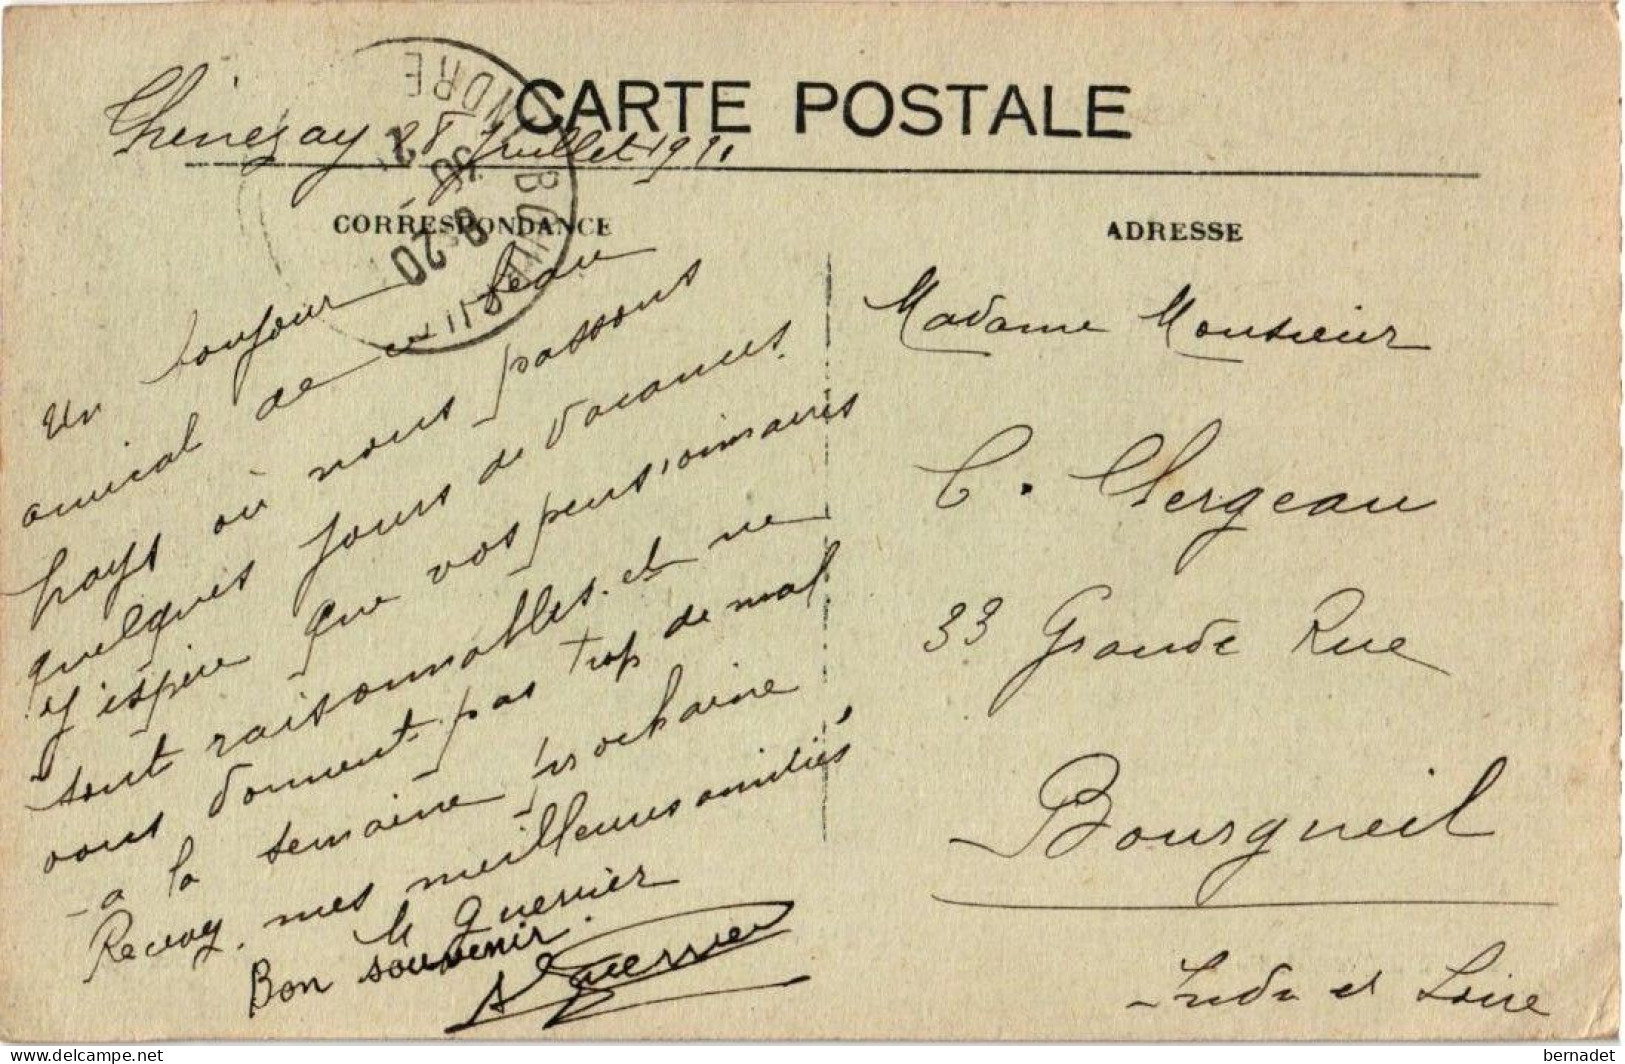 CARTE POSTALE
Thénezay 28 Juillet 19
CORRESPONDANCE
Un bonjour
amical de ce beau
pays où nous passons
quelques jours de vacances.
J'espère que vos pensionnaires
sont raisonnables et ne
vous donnent pas trop de mal
a la semaine prochaine
Recevez mes meilleures amitiés
Guerrier
Bon souvenir.
A Guerrier
ADRESSE
Madame Monsieur
C. Clergeau
33 Grande Rue
Bourgueil
Indre et Loire
INDRE
20
bernadet